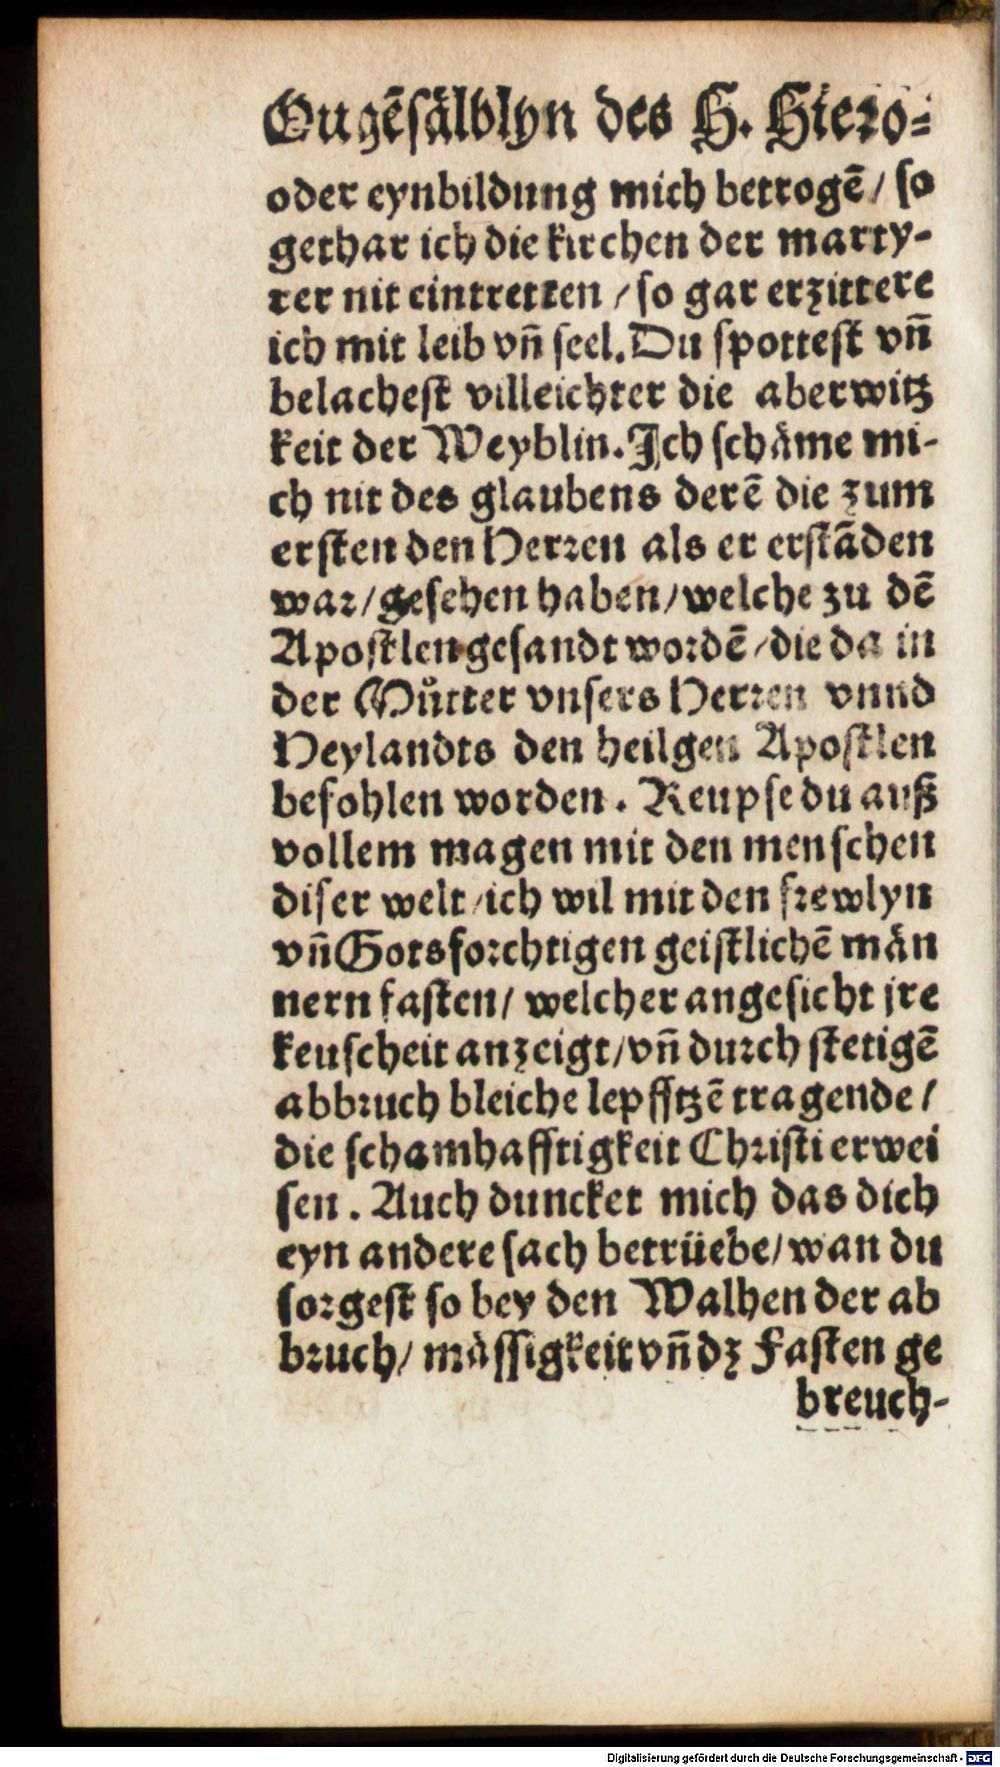 Ougẽsälblyn des H. Hiero-
oder eynbildung mich betrogẽ / so
gethar ich die kirchen der marty-
rer nit eintretten / so gar erzittere
ich mit leib vñ seel. Du spottest vñ
belachest villeichter die aberwitz
keit der Weyblin. Ich schäme mi-
ch nit des glaubens derẽ die zum
ersten den Herren als er erstãden
war / gesehen haben / welche zu dẽ
Apostlen gesandt wordẽ / die da in
der Můtter vnsers Herren vnnd
Heylandts den heilgen Apostlen
befohlen worden. Reupse du auß
vollem magen mit den menschen
diser welt / ich wil mit den frewlyn
vñ Gotsforchtigen geistlichẽ män
nern fasten / welcher angesicht jre
keuscheit anzeigt / vñ durch stetigẽ
abbruch bleiche lepfftzẽ tragende /
die schamhafftigkeit Christi erwei
sen. Auch duncket mich das dich
eyn andere sach betrüebe / wan du
sorgest so bey den Walhen der ab
bruch / mässigkeit vñ dz Fasten ge
breuch-
Digitalisierung gefördert durch die Deutsche Forschungsgemeinschaft - DFG